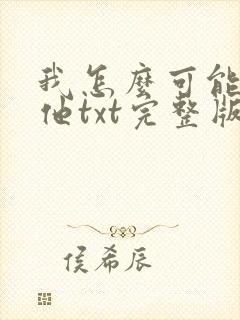 我怎麼可能
他txt完整版
侯希辰